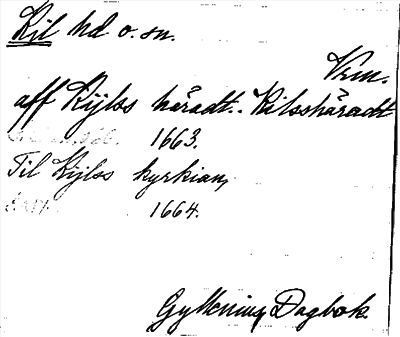 Kil hd o. sn.
Vrm.
aff Kijlss häradt.. Kilsshäradt
1663.
Til Kijlss kyrkian,
1664.
Gyllenius Dagbok.